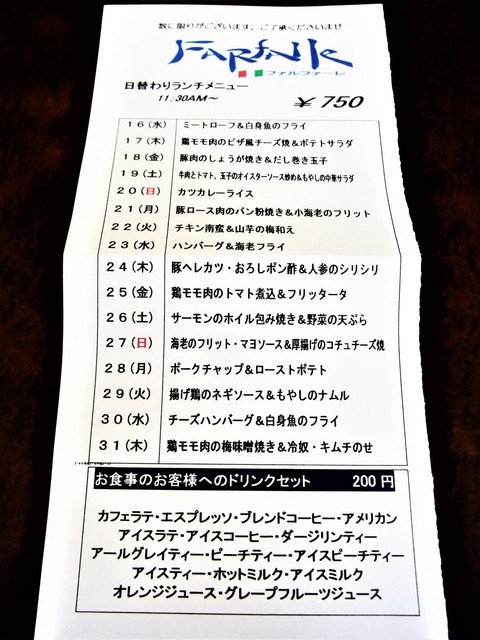 数に限りがございます。ご了承くださいませ
FARFALLE
ファルファーレ
日替わりランチメニュー
11:30AM～
¥750
16(水) ミートローフ&白身魚のフライ
17(木) 鶏モモ肉のピザ風チーズ焼&ポテトサラダ
18(金) 豚肉のしょうが焼き&だし巻き玉子
19(土) 牛肉とトマト、玉子のオイスターソース炒め&もやしの中華サラダ
20(日) カツカレーライス
21(月) 豚ロース肉のパン粉焼き&小海老のフリット
22(火) チキン南蛮&山芋の梅和え
23(水) ハンバーグ&海老フライ
24(木) 豚ヘレカツ・おろしポン酢&人参のシリシリ
25(金) 鶏モモ肉のトマト煮込&フリッタータ
26(土) サーモンのホイル包み焼き&野菜の天ぷら
27(日) 海老のフリット・マヨソース&厚揚げのコチュチーズ焼
28(月) ポークチャップ&ローストポテト
29(火) 揚げ鶏のネギソース&もやしのナムル
30(水) チーズハンバーグ&白身魚のフライ
31(木) 鶏モモ肉の梅味噌焼き&冷奴・キムチのせ
お食事のお客様へのドリンクセット 200円
カフェラテ・エスプレッソ・ブレンドコーヒー・アメリカン
アイスラテ・アイスコーヒー・ダージリンティー
アールグレイティー・ピーチティー・アイスピーチティー
アイスティー・ホットミルク・アイスミルク
オレンジジュース・グレープフルーツジュース